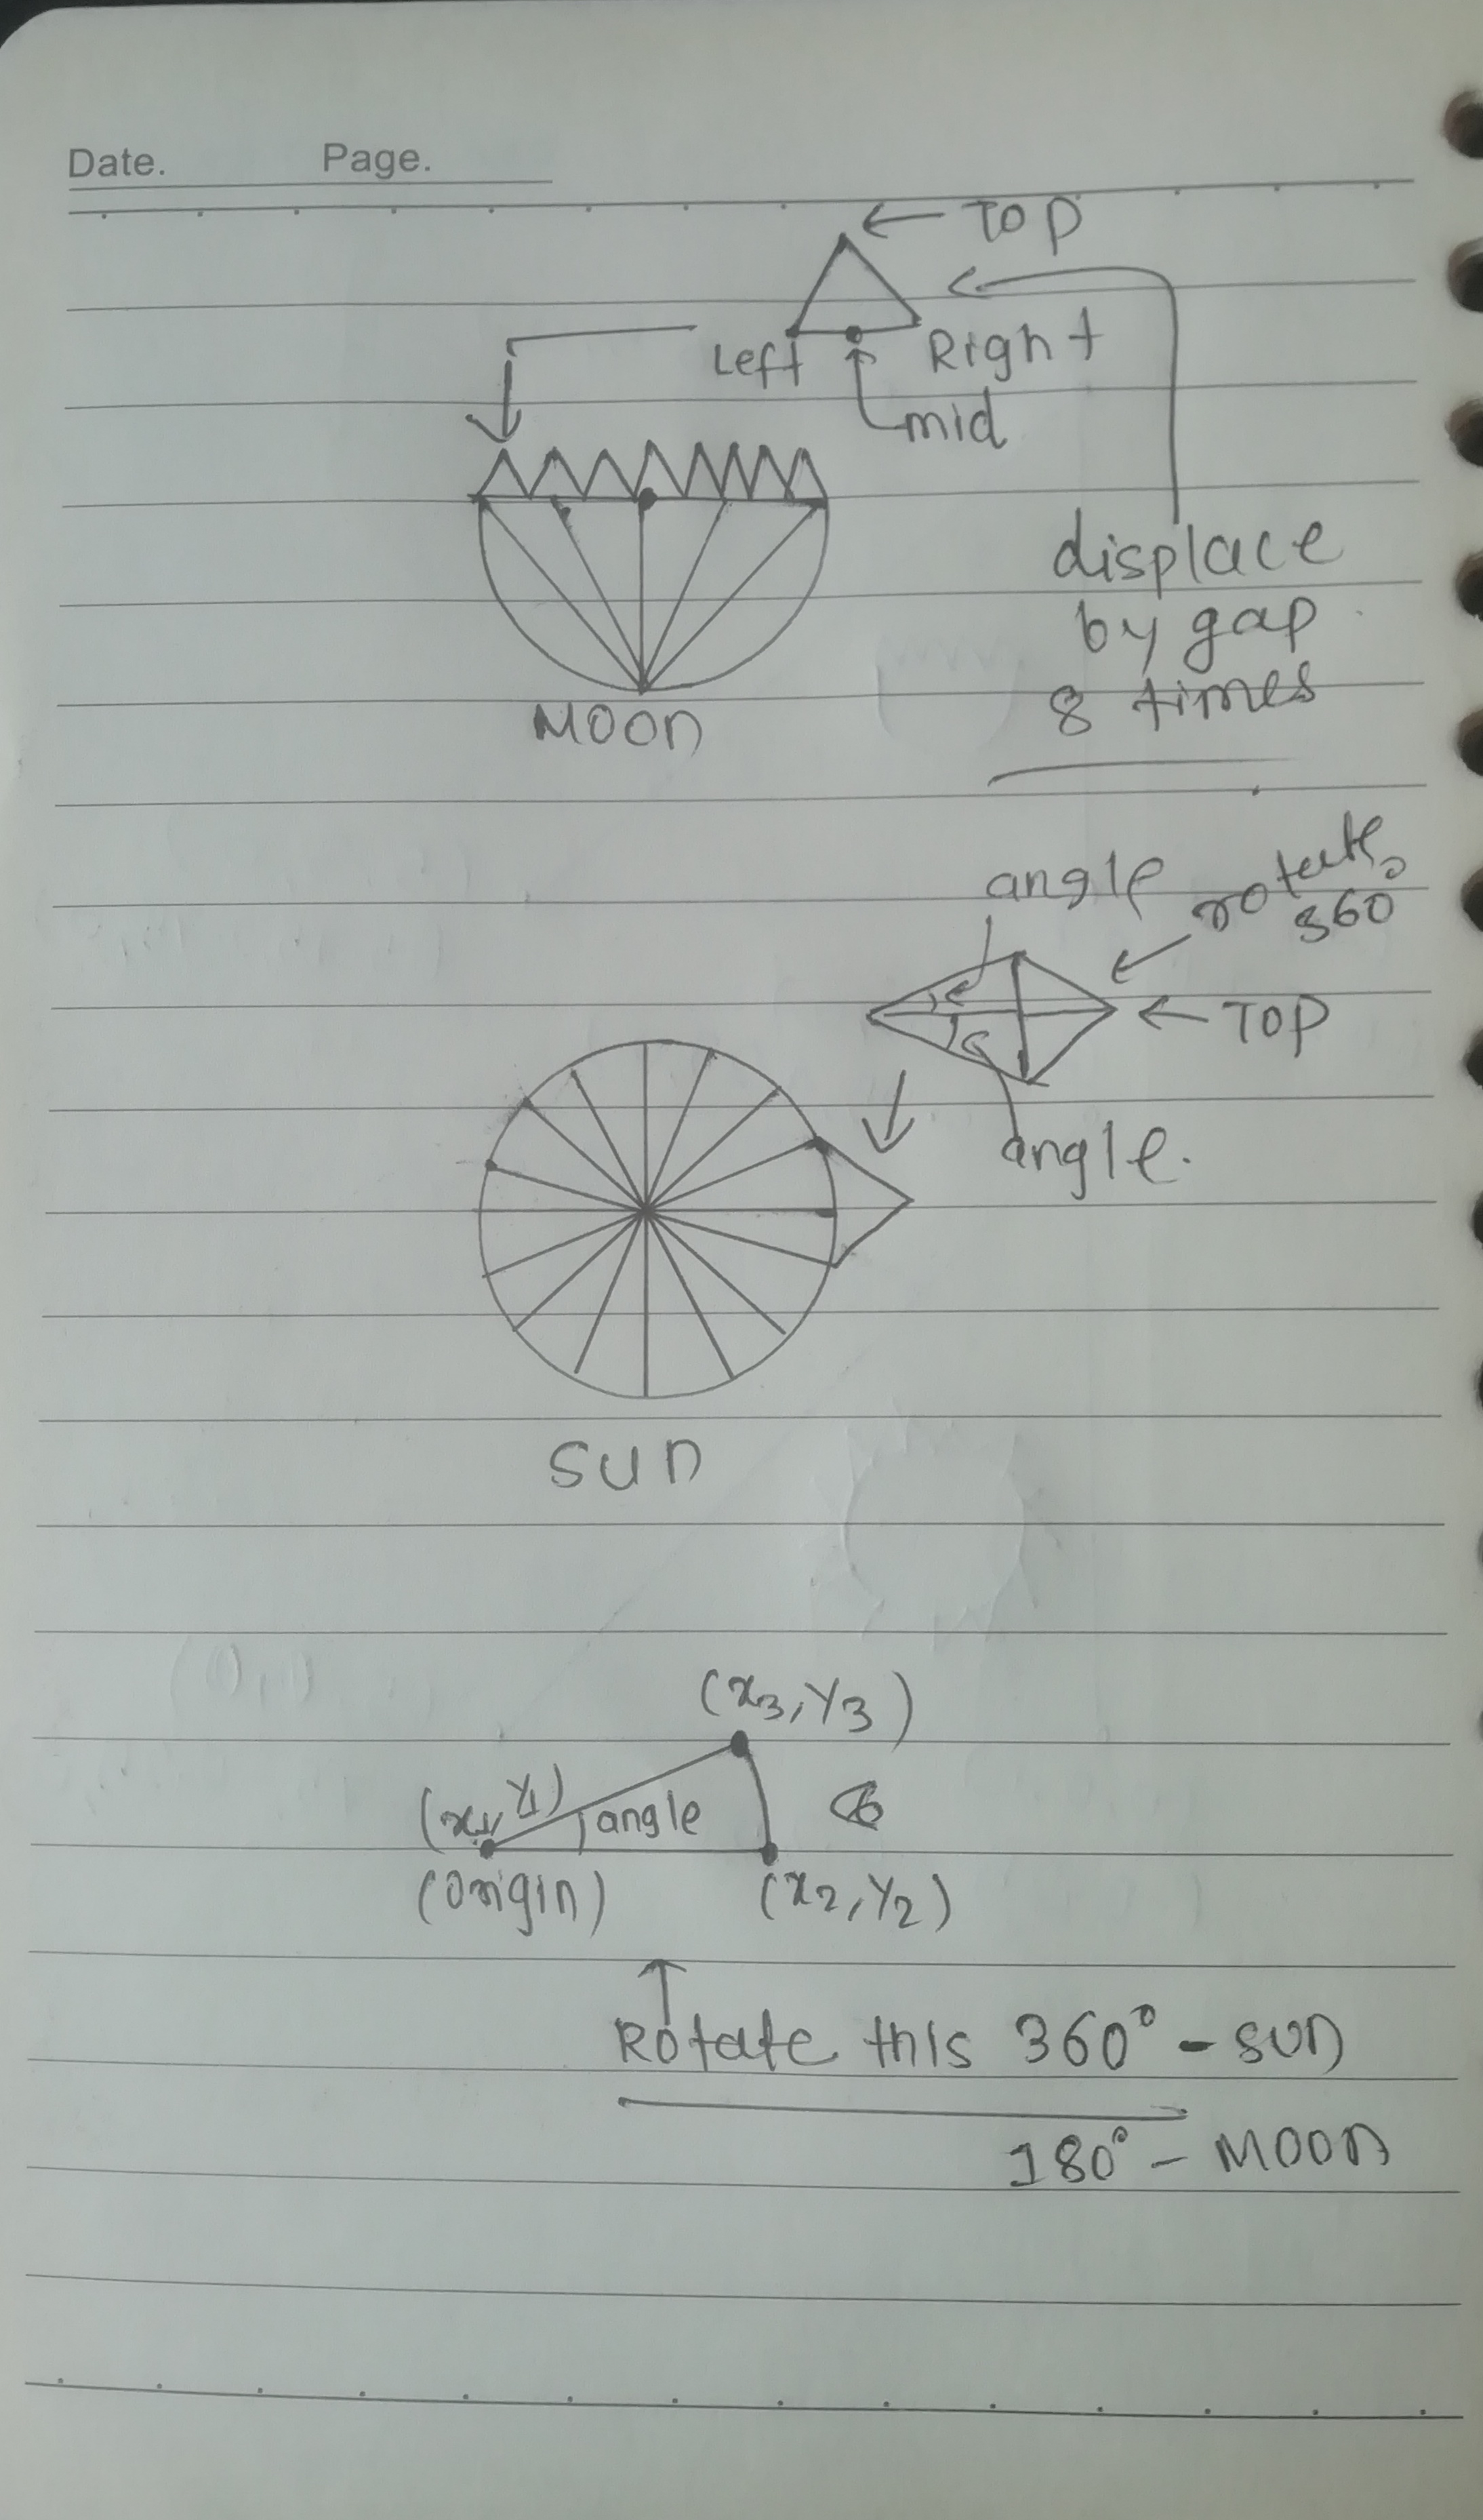 Date. Page.
← TOP
Left Right
mid
displace
by gap
8 times
MOON
angle
rotate
360
← TOP
angle.
SUN
(x3, y3)
(x1, y1)
angle
(origin)
(x2, y2)
Rotate this 360° - SUN
180° - MOON